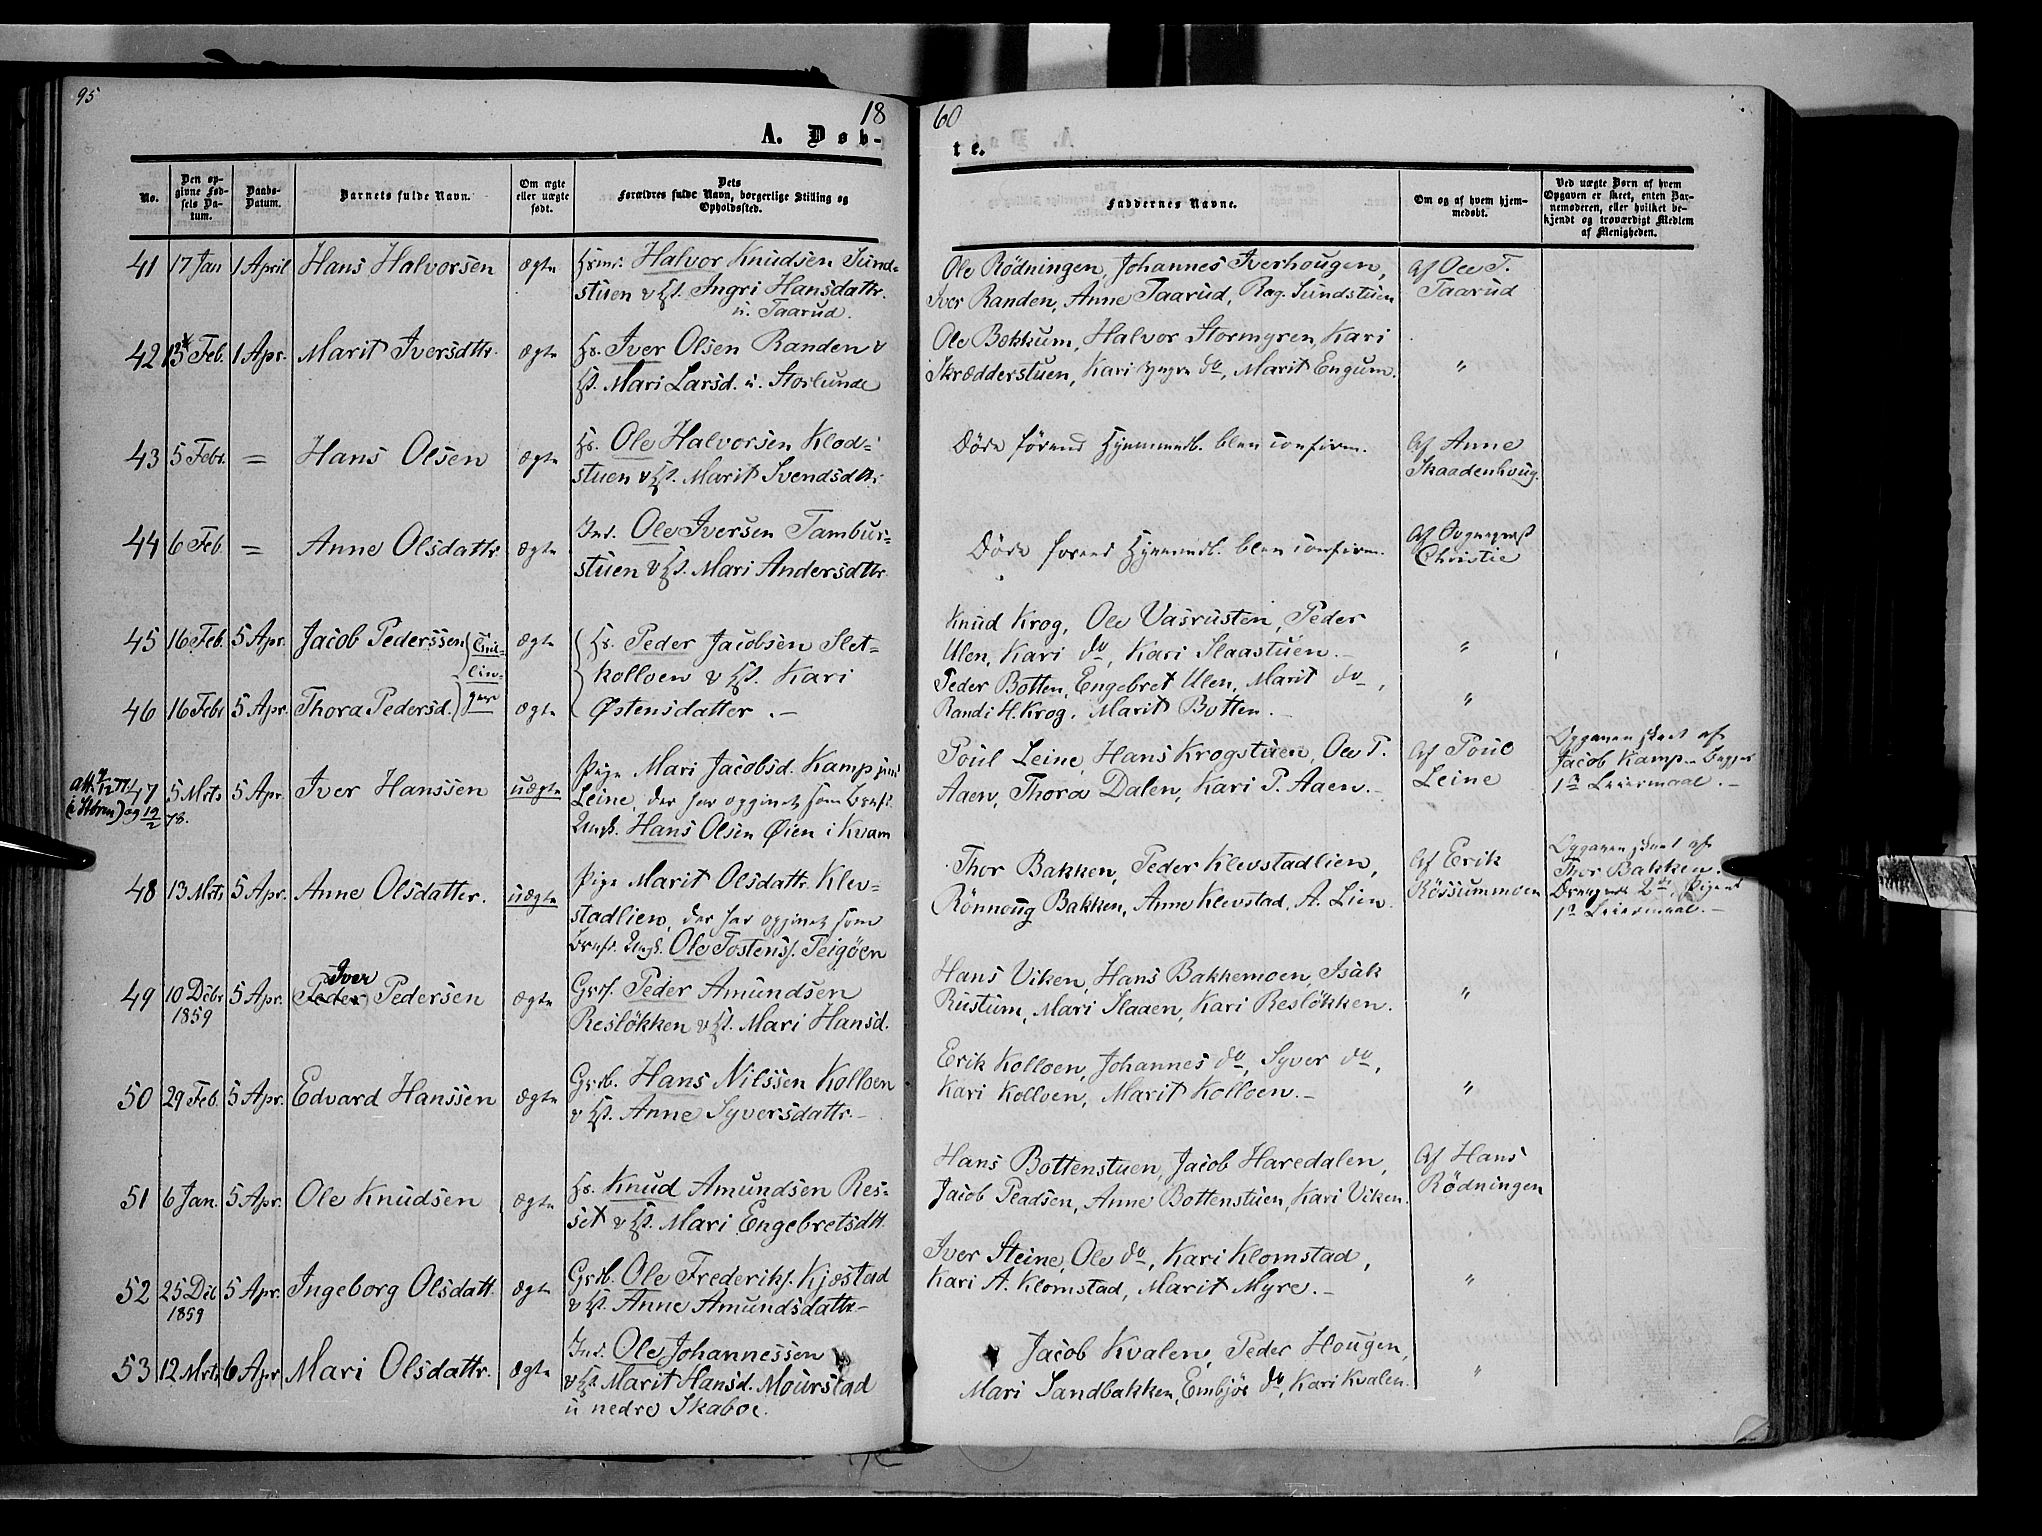 95
18
60
A. Døb-
te.
No.
Den op-
givne Fød-
sels Da-
tum.
Daabs-
Datum.
Barnets fulde Navn.
Om ægte
eller uægte
født.
Dets
Forældres fulde Navn, borgerlige Stilling og
Opholdssted.
Faddernes Navne.
Om og af hvem hjem-
medøbt.
Ved uægte Børn af hvem
Opgaven er skeet, enten Bar-
nemoderen, eller hvilket be-
kjendt og troværdigt Medlem
af Menigheden.
41 17 Jan 1 April Hans Halvorsen ægte
Halvor Knudsen Sund-
stuen & Hst. Ingri Hansdattr.
u. Taarud.
Ole Rødningen, Johannes Iverhougen,
Iver Randen, Anne Taarud, Rag. Sundstuen
Af Ole T.
Taarud
42 13 Feb. 1 Apr. Marit Iversdttr. ægte
Hs. Iver Olsen Randen &
Hst. Mari Larsd. u. Storlunde
Ole Bokkum, Halvor Stormyren, Kari
Skrædderstuen, Kari yngre do, Marit Engum.
"
43 5 Febr. = Hans Olsen ægte
Hs. Ole Halvorsen Klod-
stuen & Hst. Marit Svendsdttr.
Døde førend Hjemmedb. blev confirm.
Af Anne
Skaadenhoug.
44 6 Feb. = Anne Olsdattr. ægte
Ind. Ole Iversen Tambur-
stuen & Hst. Mari Andersdttr.
Døde førend Hjemmedb. blev confirm.
Af Sognepræst
Christie
45 16 Feb. 5 Apr. Jacob Perderssen ægte
Tvil-
lin-
ger
Hs. Peder Jacobsen Slet-
kolloen & Hst. Kari
Østensdatter. -
Knud Krog, Ole Vasrusten, Peder
Ulen, Kari do, Kari Slaastuen. -
"
46 16 Febr 5 Apr. Thora Pedersd. ægte
Peder Botten, Engebret Ulen, Marit do,
Randi H. Krog, Marit Botten. -
"
47 5 Mrts 5 Apr. Iver Hanssen uægte
Pige Mari Jacobsd. Kamp
Leine, der har opgivet som Barnef.
Ungk. Hans Olsen Øien i Kvam
Poul Leine, Hans Krogstuen, Ole P.
Aaen, Thora Dalen, Kari P. Aaen. -
Af Poul
Leine
Opgaven skeet af
Jacob Kamp - Begges
1ste Leiermaal. -
48 13 Mrts 5 Apr. Anne Olsdatter. uægte
Pige Marit Olsdattr. Klev-
stadlien, der har opgivet som
Barnef. Ungk. Ole Tostens. Teigøen
Thor Bakken, Peder Klevstadlien,
Rönnoug Bakken, Anne Klevstad, A. Lien.
Af Erik
Røssummoen
Opgaven skeet af
Thor Bakken.
Drengens 2det, Pigens
1ste Leiermaal. -
49 10 Dcbr 5 Apr. (Peder) Pedersen ægte
Iver
1859
Peder Amundsen
Resløkken & Hst. Mari Hansd.
Hans Viken, Hans Bakkemoen, Isak
Rustum, Mari Slaaen, Kari Resløkken.
"
50 29 Feb. 5 Apr. Edvard Hanssen ægte
Grdb. Hans Nilssen Kolloen
& Hst. Anne Syversdattr. -
Erik Kolloen, Johannes do, Syver do,
Kari Kolloen, Marit Kolloen. -
"
51 6 Jan. 5 Apr. Ole Knudsen ægte
Hs. Knud Amundsen Res-
set & Hst. Mari Engebretsdtt.
Hans Bottenstuen, Jacob Haredalen,
Jacob Pladsen, Anne Bottenstuen, Kari Viken.
Af Hans
Rødningen
52 25 Dec 5 Apr. Ingeborg Olsdatt. ægte
1859
Grdb. Ole Frederiks. Kjøstad
& Hst. Anne Amundsdattr -
Iver Steine, Ole do, Kari Klomstad,
Kari A. Klomstad, Marit Myre. -
"
53 12 Mrts 6 Apr Mari Olsdattr. ægte
Ind. Ole Johannessen
& Hst. Marit Hansd. Mourstad
u nedre Skaboe.
Jacob Kvalen, Peder Hougen,
Mari Sandbakken, Embjør do, Kari Kvalen.
"